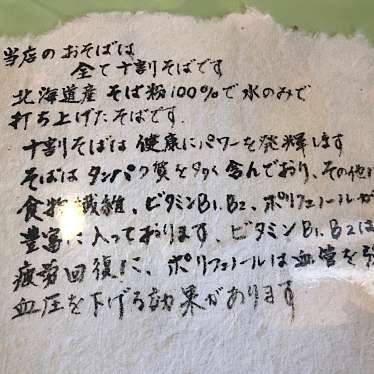 当店のおそばは
全て十割そばです
北海道産そば粉100%で水のみで
打ち上げたそばです.
十割そばは健康にパワーを発揮します
そばはタンパク質を多く含んでおり、その他に
食物繊維、ビタミンB1.B2、ポリフェノールが
豊富に入っております、ビタミンB1.B2は
疲労回復に、ポリフェノールは血管を強
血圧を下げる効果があります